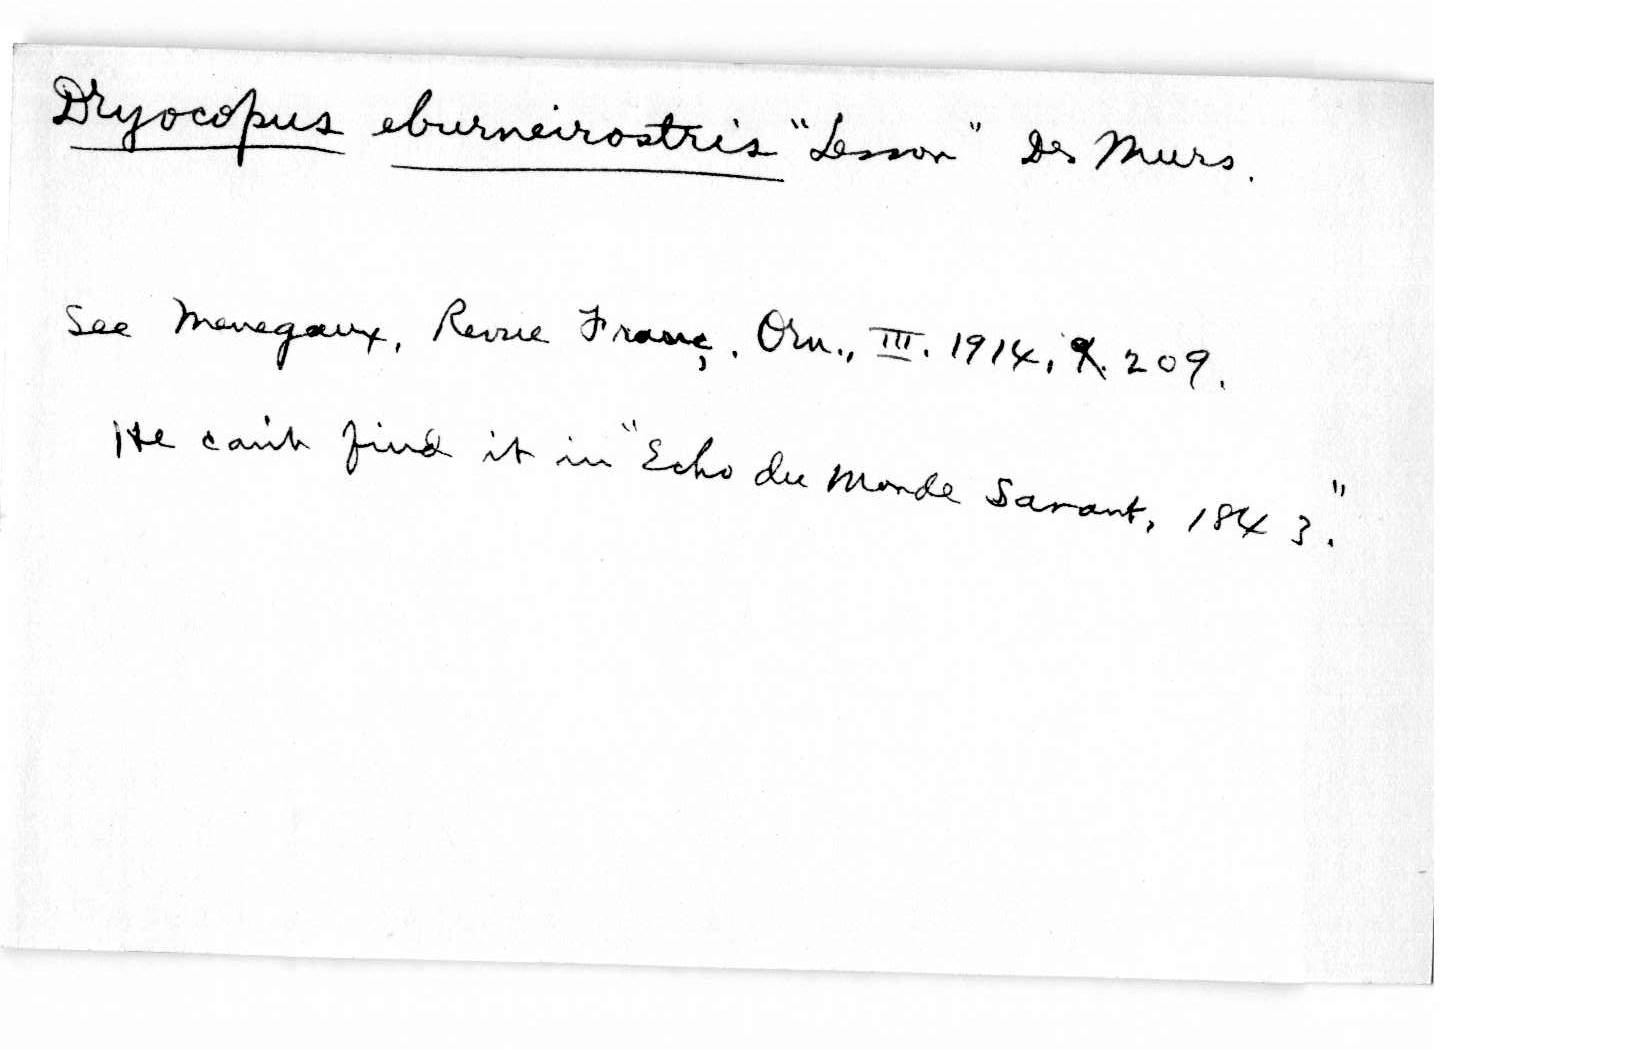 Dryocopus eburneirostris "Lesson" Des Murs.
See Menegaux, Revue Franç. Orn., III. 1914, p. 209.
He can't find it in "Echo du Monde Savant, 1843."